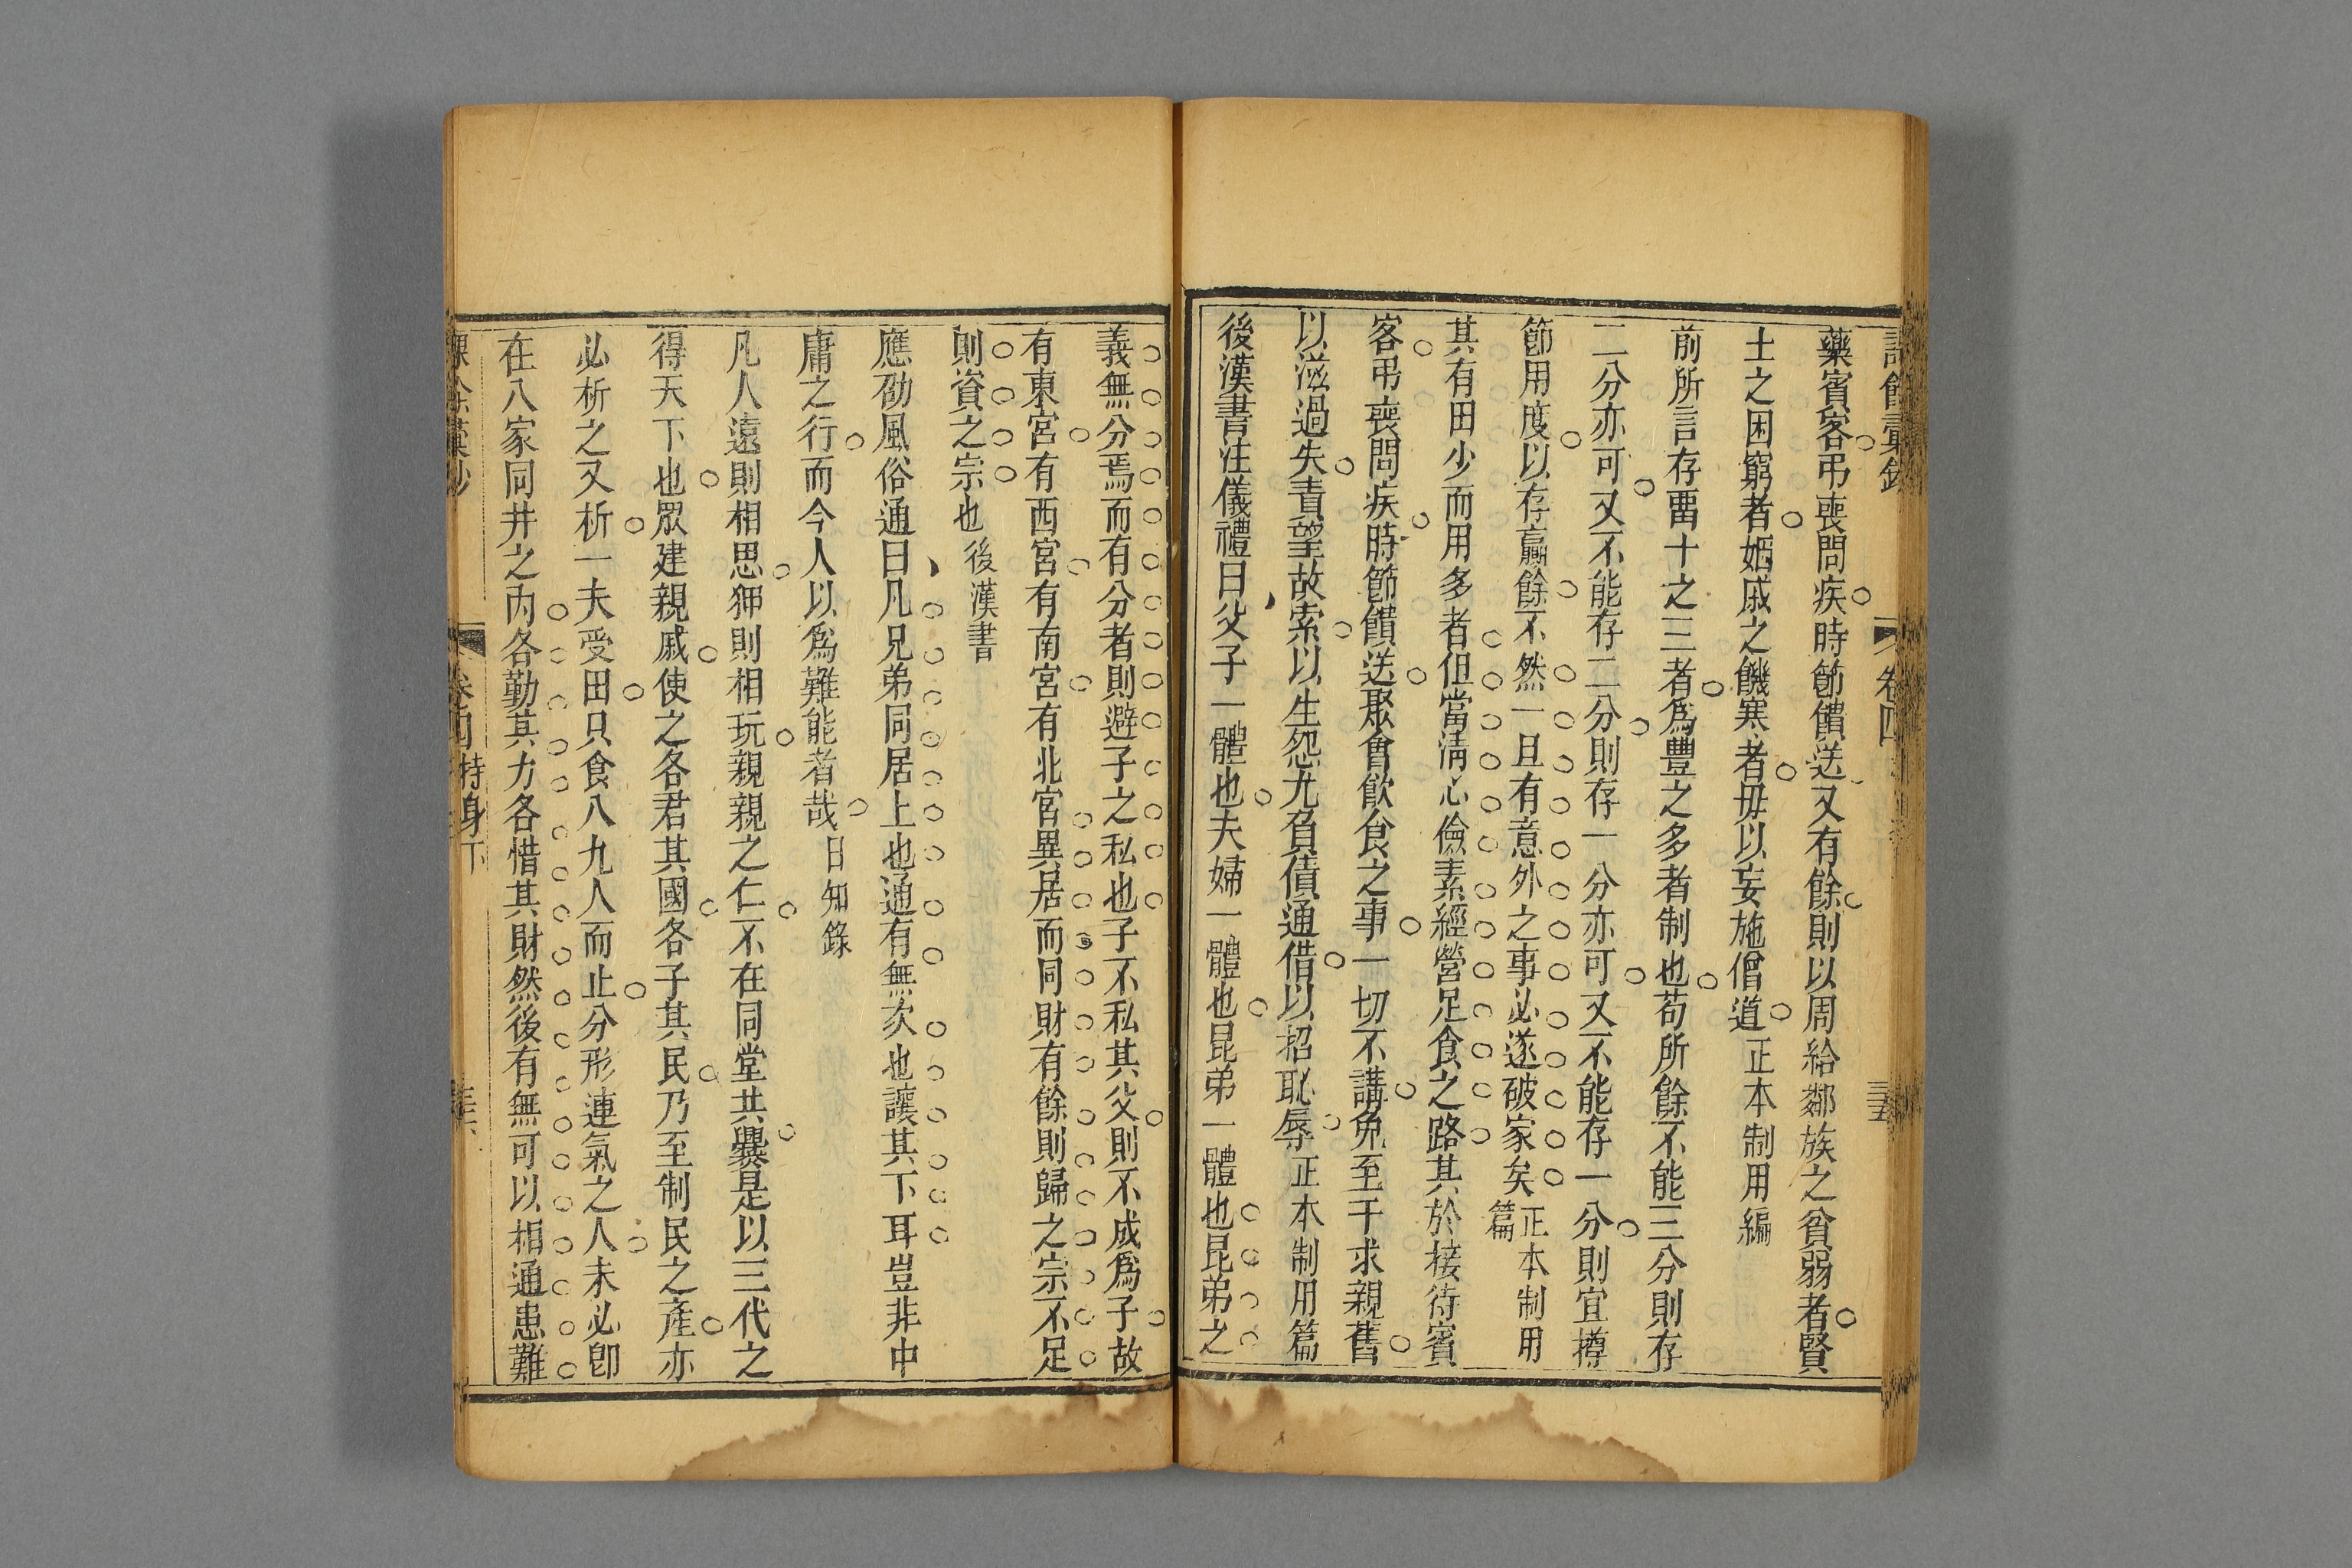 卷四
藥賓客弔喪問疾時節饋送又有餘則以周給鄰族之貧弱者賢
士之困窮者姻戚之饑寒者毋以妄施僧道正本制用編
前所言存畱十之三者爲豐之多者制也苟所餘不能三分則存
二分亦可又不能存二分則存一分亦可又不能存一分則宜撙
節用度以存贏餘不然一旦有意外之事必遂破家矣正本制用
篇
其有田少而用多者但當淸心儉素經營足食之路其於接待賓
客弔喪問疾時節饋送聚會飮食之事一切不講免至干求親舊
以滋過失責望故索以生怨尤負債通借以招恥辱正本制用篇
後漢書注儀禮曰父子一體也夫婦一體也昆弟一體也昆弟之
義無分焉而有分者則避子之私也子不私其父則不成爲子故
有東宮有西宮有南宮有北宮異居而同財有餘則歸之宗不足
則資之宗也後漢書
應劭風俗通曰凡兄弟同居上也通有無次也讓其下耳豈非中
庸之行而今人以爲難能者哉日知錄
凡人遠則相思狎則相玩親親之仁不在同堂共爨是以三代之
得天下也眾建親戚使之各君其國各子其民乃至制民之產亦
必析之又析一夫受田只食八九人而止分形連氣之人未必卽
在八家同井之內各勤其力各惜其財然後有無可以相通患難
卷四持身下